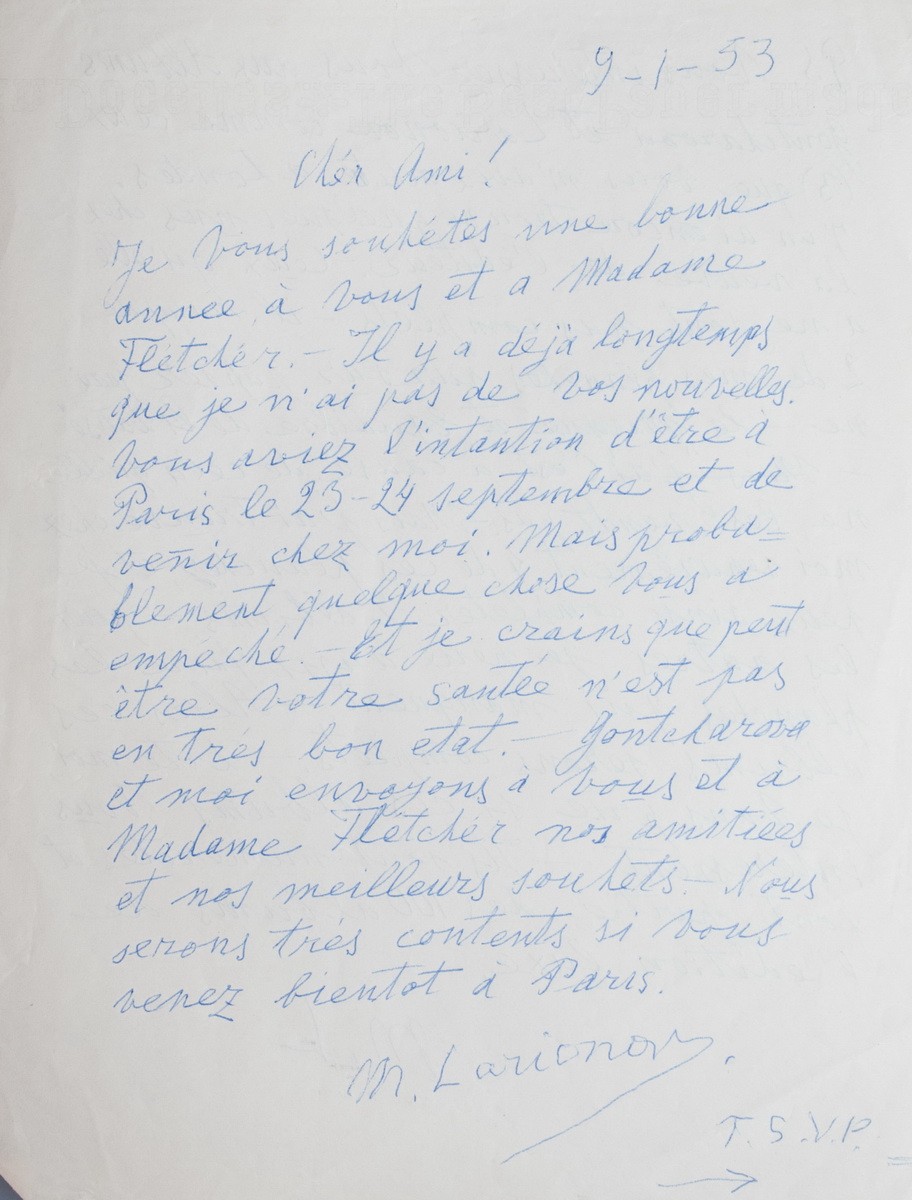 9-1-53
Chér Ami!
Je vous souhétes une bonne
annee à vous et a Madame
Flétchér.- Il y a déjà longtemps
que je n'ai pas de vos nouvelles.
Vous aviez l'intantion d'être à
Paris le 23-24 septembre et de
venir chez moi. Mais proba=
blement quelque chose vous a
empeché.- Et je crains que peut
être votre santée n'est pas
en trés bon etat.- Gontcharova
et moi envoyons à vous et à
Madame Flétchér nos amitiées
et nos meilleurs souhets- Nous
serons trés contents si vous
venez bientot à Paris.
M. Larionov.
T.S.V.P.